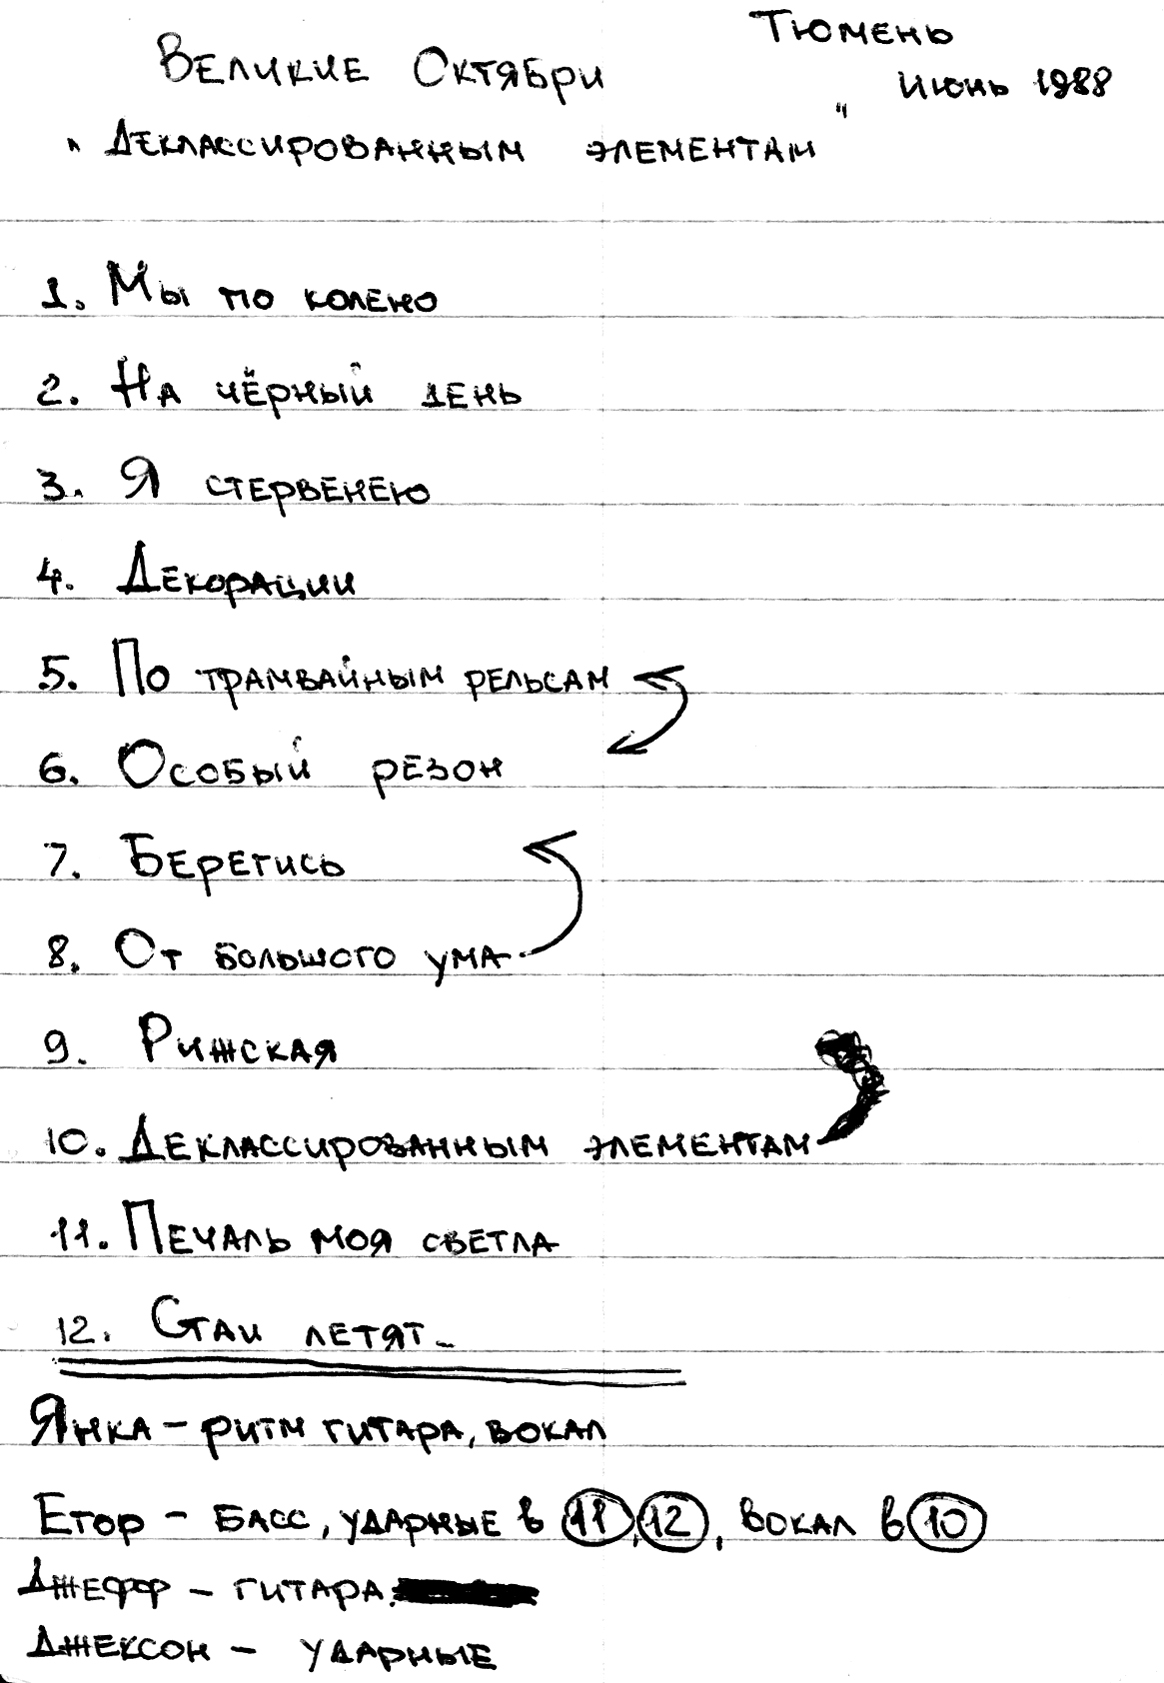 Великие Октябри
Тюмень
Июнь 1988
"Деклассированным элементам"
1. Мы по колено
2. На чёрный день
3. Я стервенею
4. Декорации
5. По трамвайным рельсам
6. Особый резон
7. Берегись
8. От большого ума
9. Рижская
10. Деклассированным элементам
11. Печаль моя светла
12. Стаи летят
Янка – ритм гитара, вокал
Егор – басс, ударные в 11, 12, вокал в 10
Джефф – гитара.
Джексон – ударные